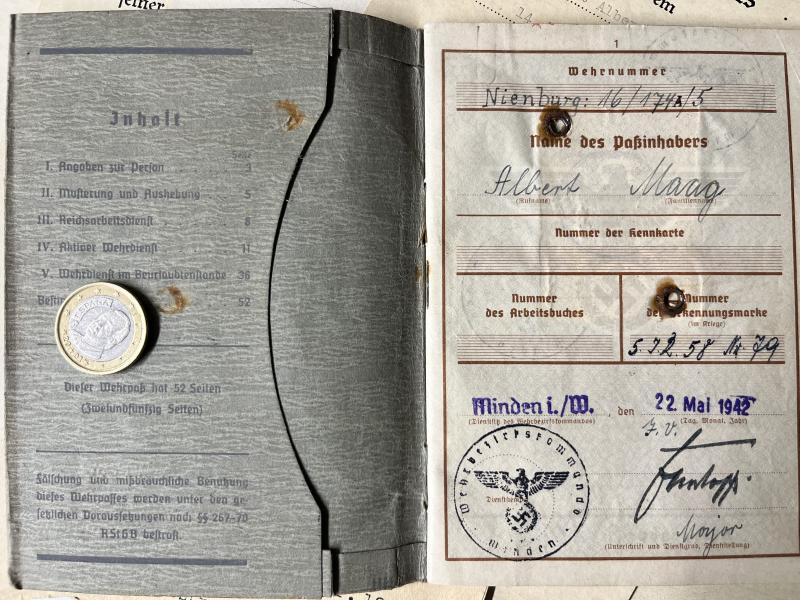 seiner
14
Albe
em
Inhalt
Seite
I. Angaben zur Person . . 3
II. Musterung und Aushebung . 5
III. Reichsarbeitsdienst . . 8
IV. Aktiver Wehrdienst . . 11
V. Wehrdienst im Beurlaubtenstande 36
52
ESPAÑA
Dieser Wehrpaß hat 52 Seiten
(Zweiundfünfzig Seiten)
Fälschung und mißbräuchliche Benutzung
dieses Wehrpasses werden unter den ge-
setzlichen Voraussetzungen nach §§ 267-70
RStGB bestraft.
1
Wehrnummer
Nienburg: 16/174/5
Name des Paßinhabers
Albert Maag
(Rufname) (Familienname)
Nummer der Kennkarte
Nummer
des Arbeitsbuches
Nummer
der Erkennungsmarke
(im Kriege)
58 Nr. 79
Minden i./W. , den 22. Mai 1942
(Dienstsitz des Wehrbezirkskommandos) (Tag, Monat, Jahr)
J. V.
Wehrbezirkskommando
Minden
Major
(Unterschrift und Dienstgrad, Dienststellung)